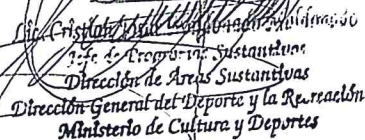 Lic. Cristian
Jefe de Programas Sustantivos
Dirección de Áreas Sustantivas
Dirección General del Deporte y la Recreación
Ministerio de Cultura y Deportes